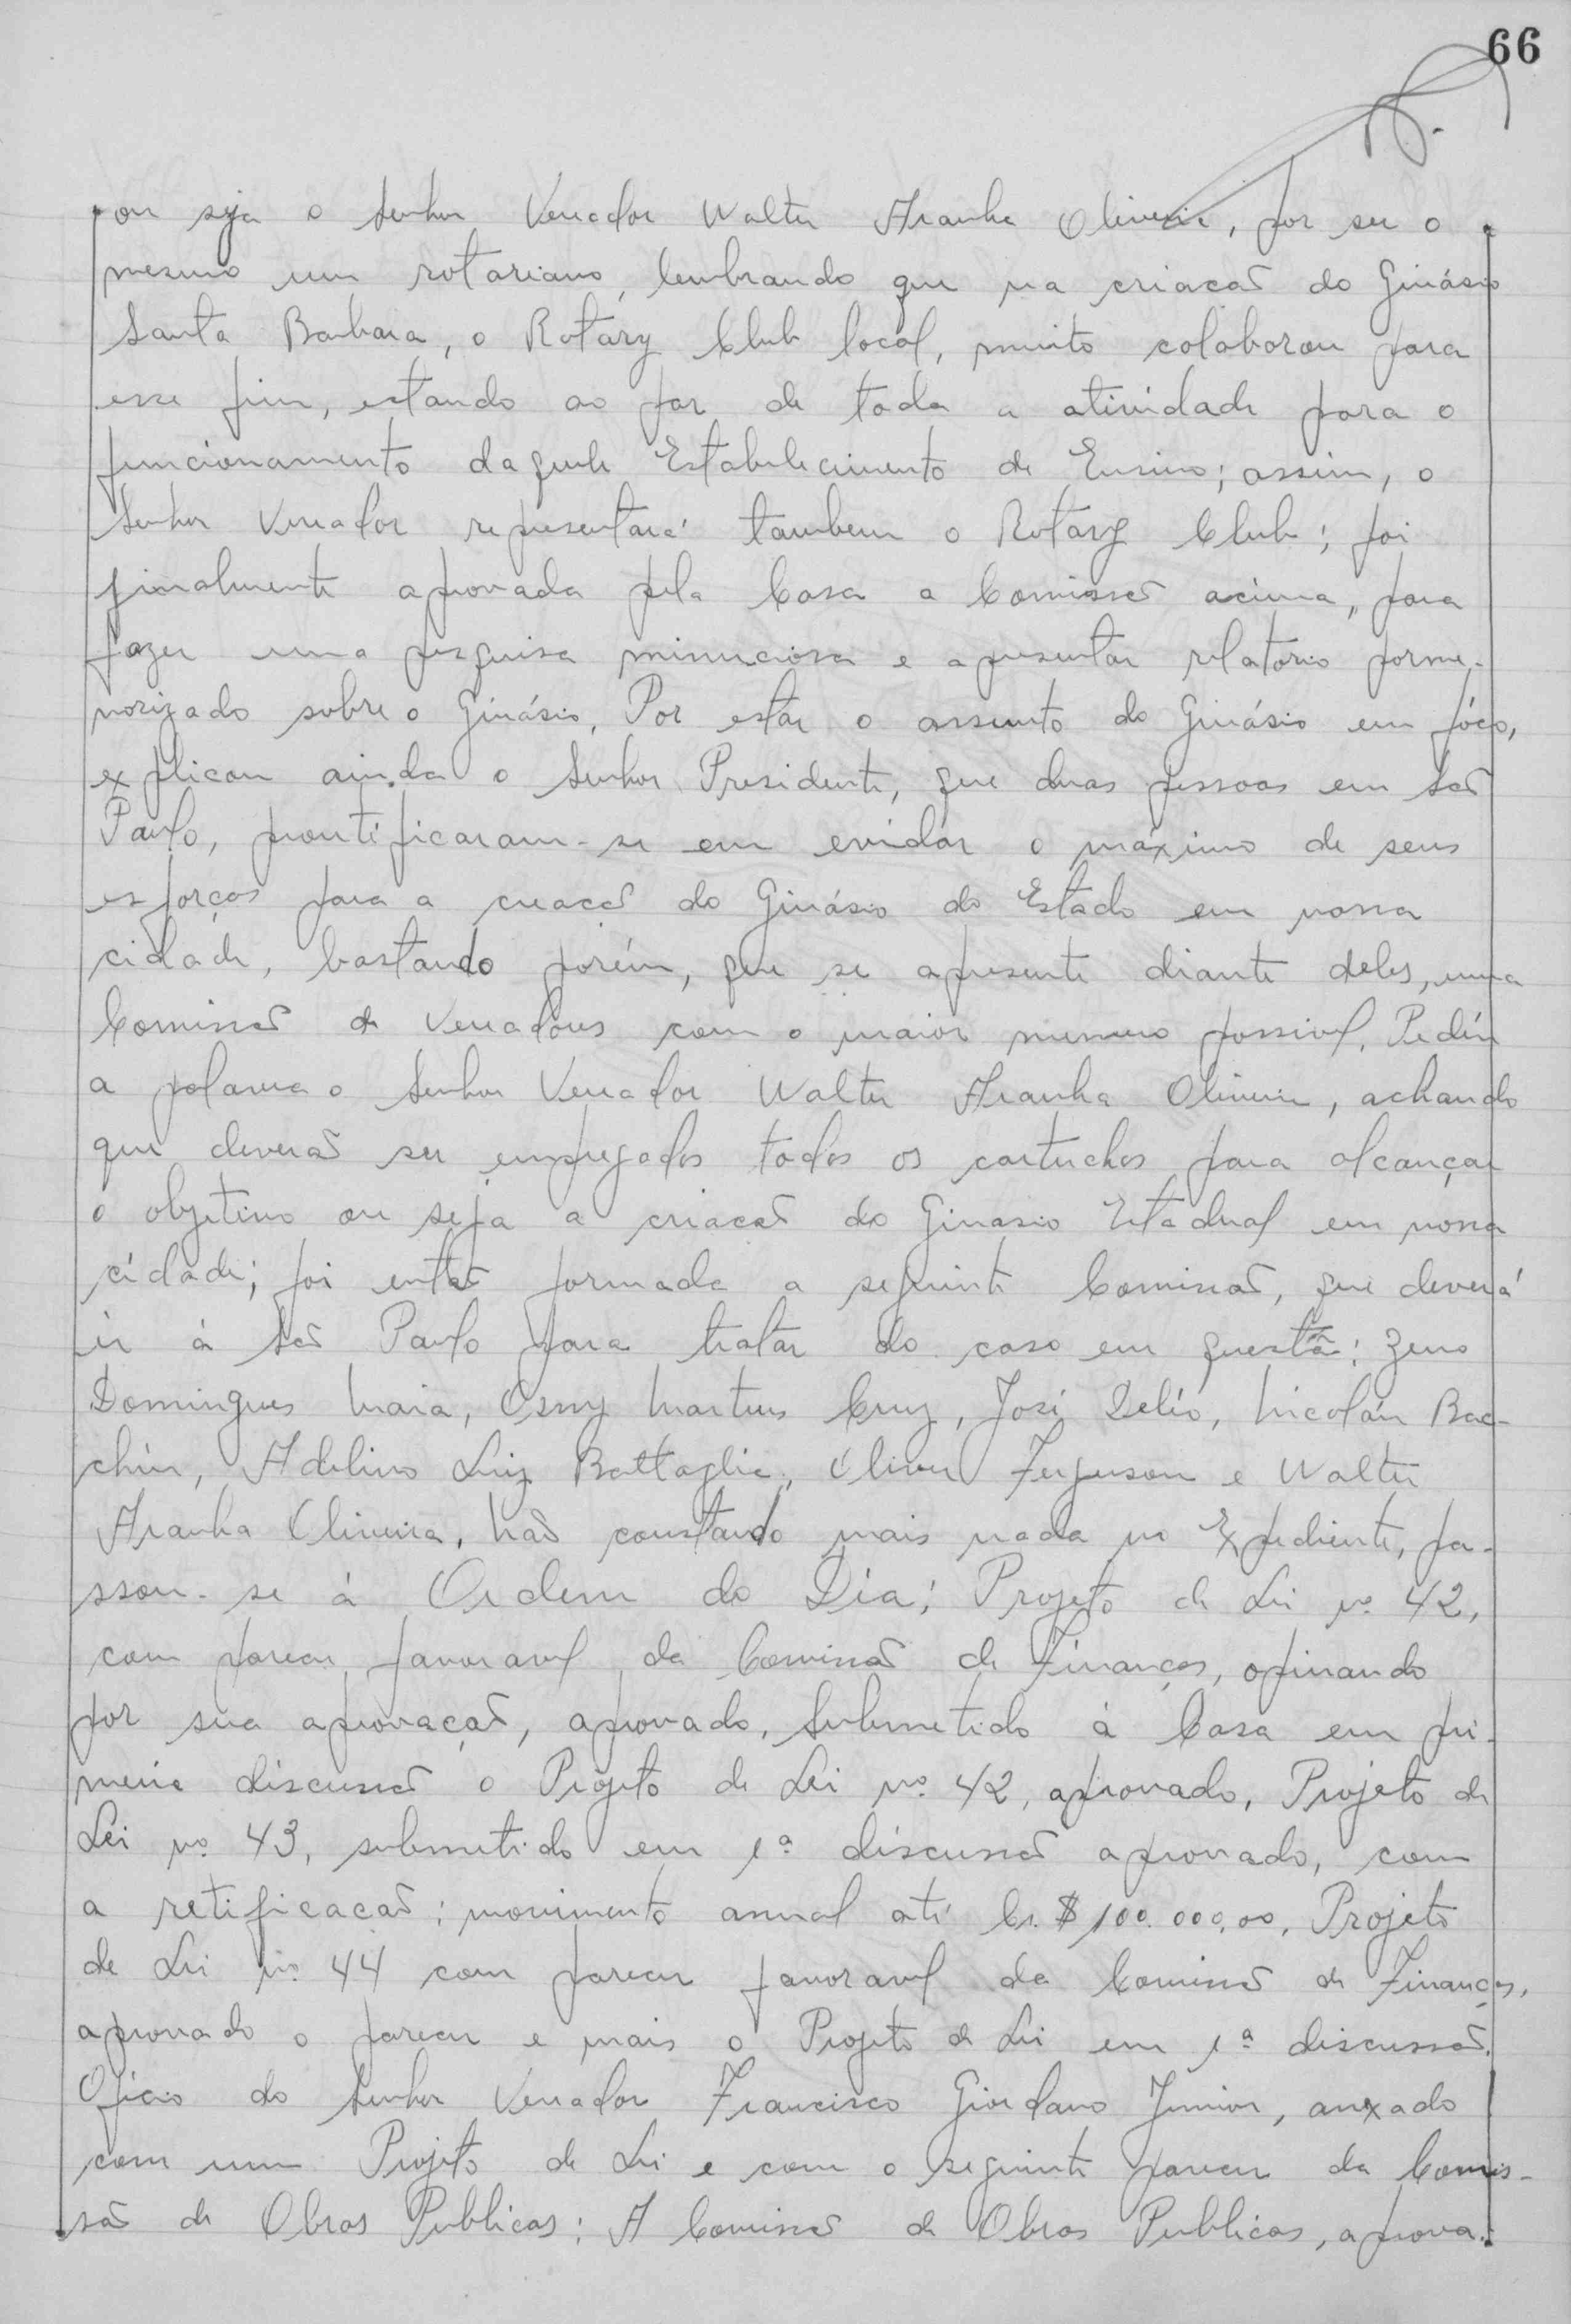 66
ou seja o Senhor Vereador Walter Aranha Oliveira, por ser o
mesmo um rotariano, lembrando que na criacaõ do Ginásio
Santa Barbara, o Rotary Club local, muito colaborou para
esse fim, estando ao par de toda a atividade para o
funcionamento daquele Estabelecimento de Ensino; assim, o
Senhor Vereador representará tambem o Rotary Club; foi
finalmente aprovada pela Casa a Comissaõ acima, para
fazer uma pesquisa minuciosa e apresentar relatorio porme-
norizado sobre o Ginásio. Por estar o assunto do Ginásio em fóco,
explicou ainda o Senhor Presidente, que duas pessoas em Saõ
Paulo, prontificaram-se em evidar o máximo de seus
esforços para a creacaõ do Ginásio do Estado em nossa
cidade, bastando porém, que se apresente diante deles, uma
Comissaõ de Vereadores com o maior numero possivel. Pediu
a palavra o Senhor Vereador Walter Aranha Oliveira, achando
que deveraõ ser empregados todos os cartuchos para alcançar
o objetivo ou seja a criacaõ do Ginasio Estadual em nossa
cidade; foi entaõ formada a seguinte Comissaõ, que deverá
ir à Saõ Paulo para tratar do caso em questão: Zeno
Domingues Maia, Osny Martins Cruz, José Delío, Nicolau Bac-
chin, Adelino Luiz Battaglia, Oliver Ferguson e Walter
Aranha Oliveira. Naõ constando mais nada no Expediente, pa-
ssou-se à Ordem do Dia; Projeto de Lei nº 42,
com parecer favoravel da Comissaõ de Finanças, opinando
por sua aprovaçaõ, aprovado. Submetido à Casa em pri-
meira discussaõ o Projeto de Lei nº 42, aprovado. Projeto de
Lei nº 43, submetido em 1ª discussaõ aprovado, com
a retificacaõ; movimento anual até Cr.$ 100.000,00. Projeto
de Lei nº 44 com parecer favoravel da Comissaõ de Finanças,
aprovado o parecer e mais o Projeto de Lei em 1ª discussaõ.
Oficio do Senhor Vereador Francisco Giordano Junior, anexado
com um Projeto de Lei e com o seguinte parecer da Comis-
saõ de Obras Publicas: A Comissaõ de Obras Publicas, aprova.